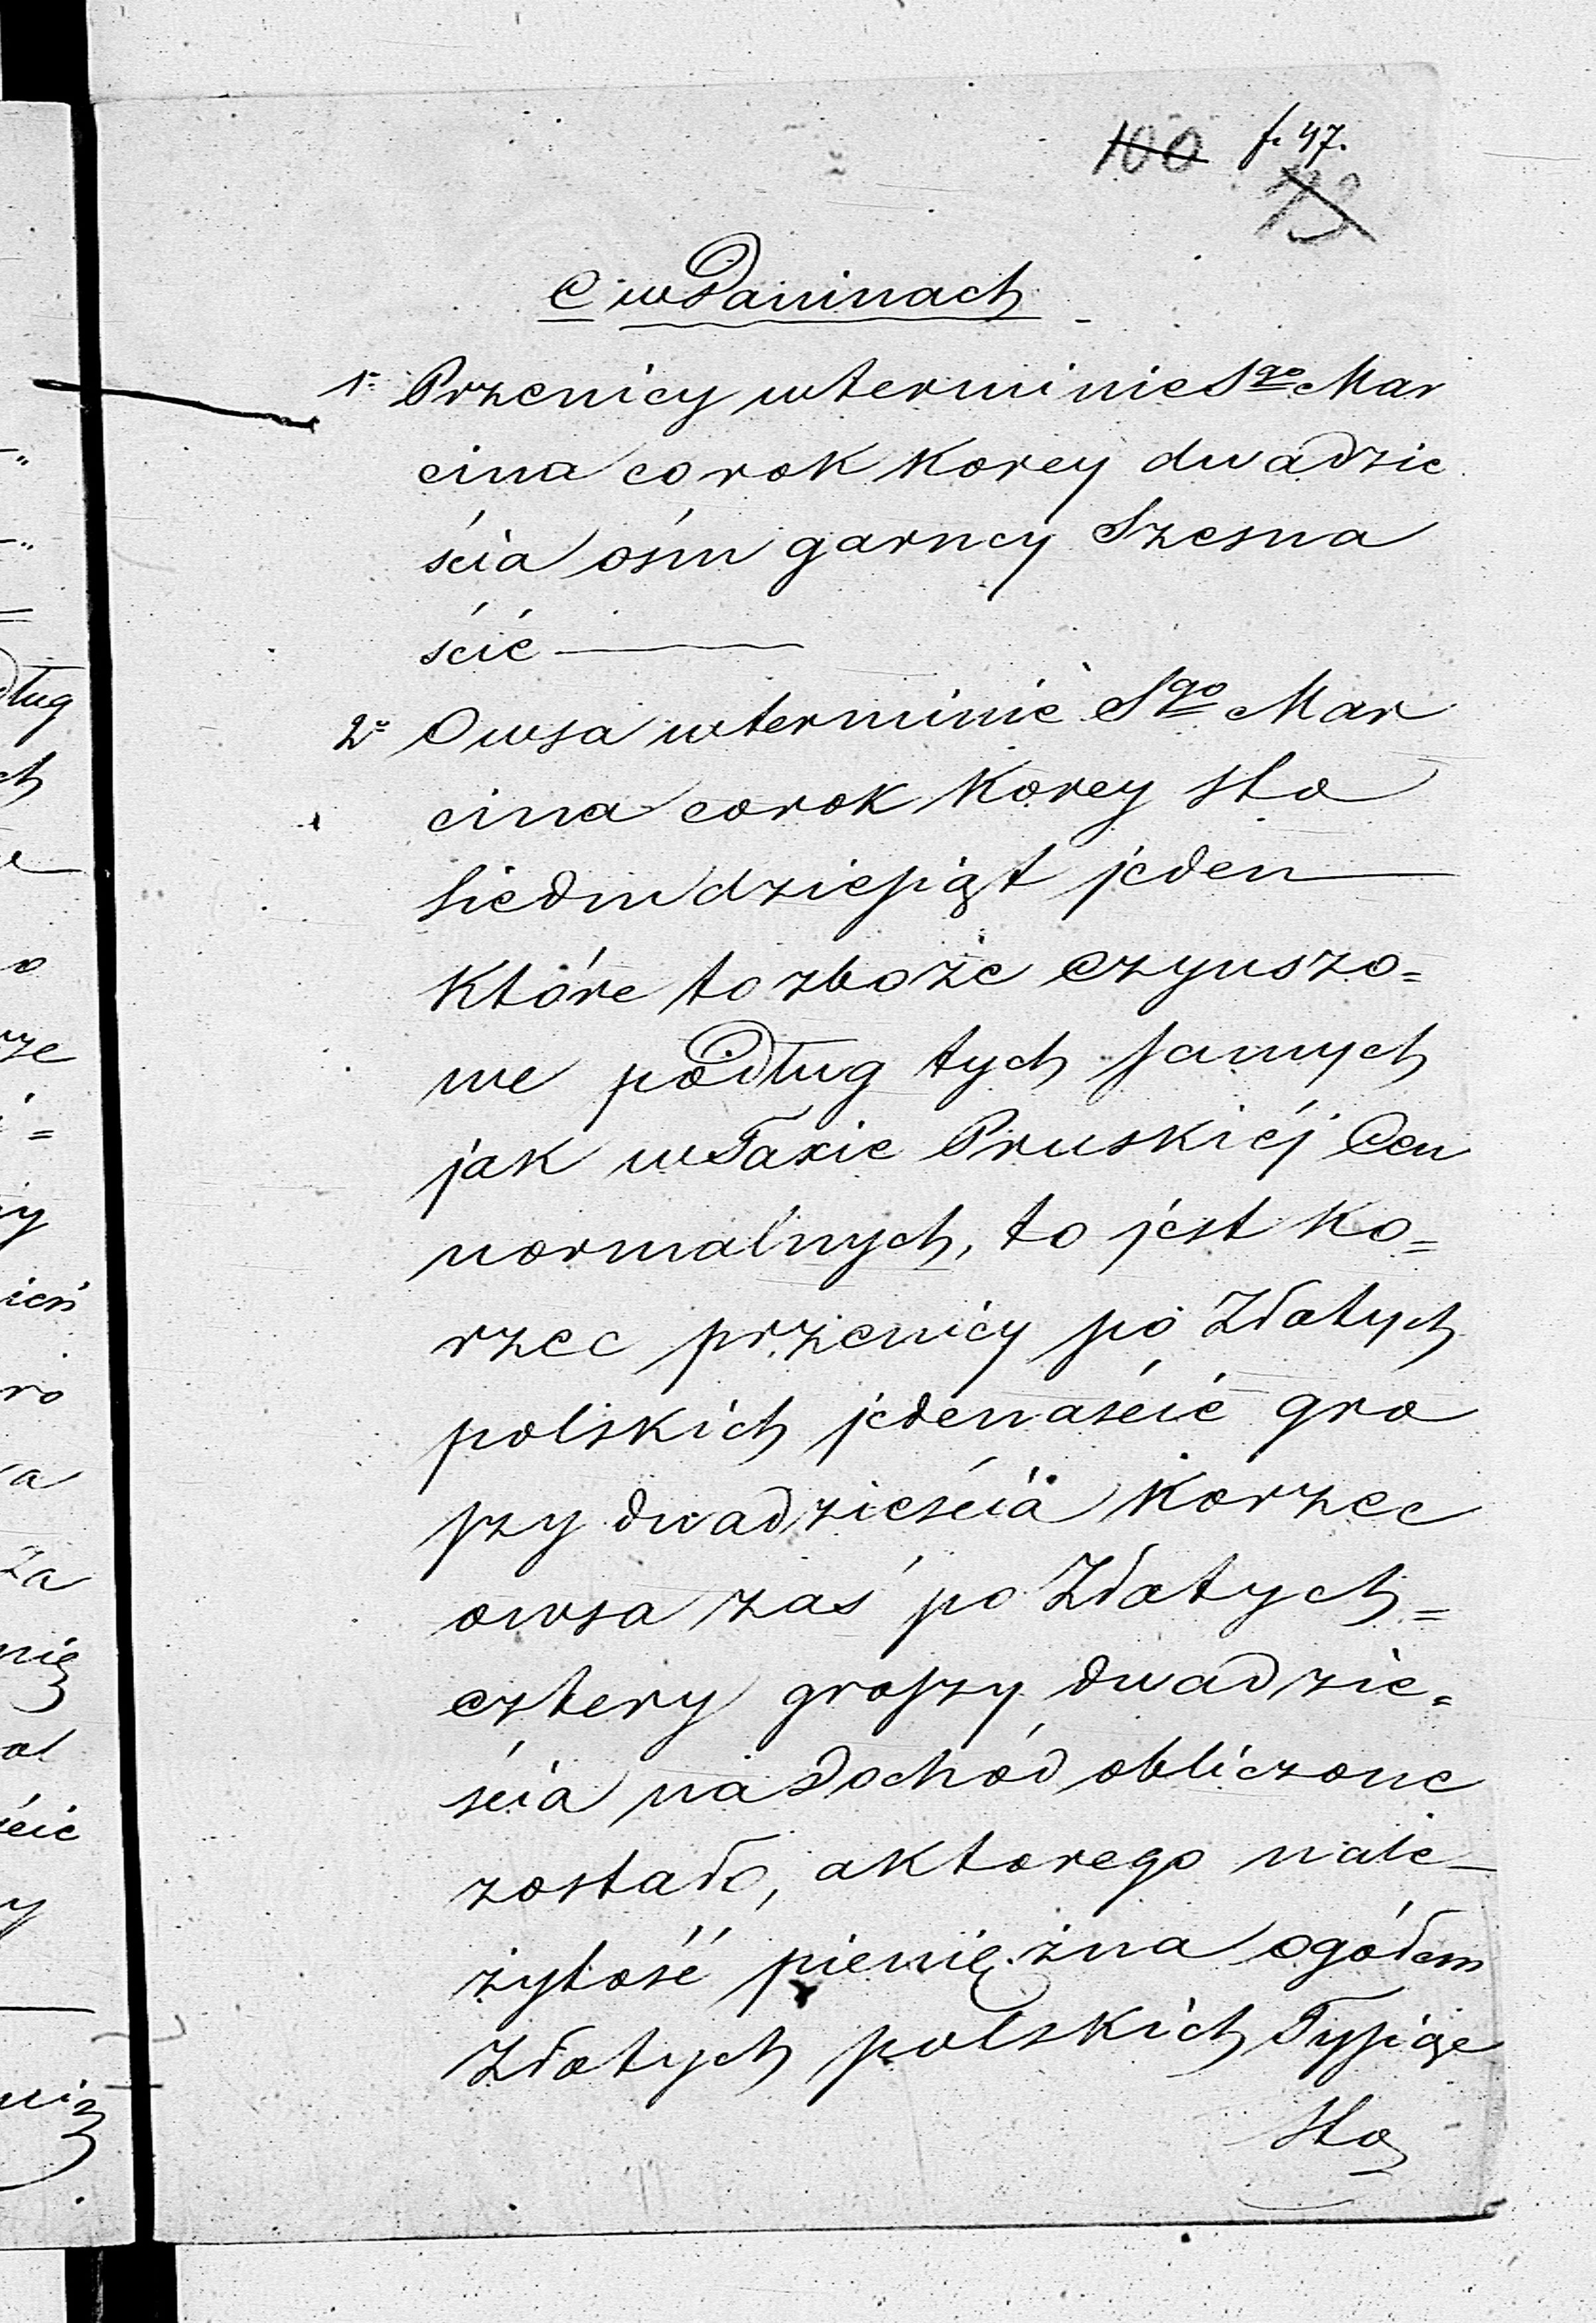 100 f. 47.
C w Daninach
1° Przenicy w terminie Sgo Mar
cina co rok Korcy dwadzie
ścia ośm garncy Szesna
ście
2° Owsa w terminie Sgo Mar
cina co rok Korcy sto
siedmdziesiąt jeden
Które to zboże czynszo=
we podług tych samych
jak w Taxie Pruskiéj Cen
normalnych, to jest Ko=
rzec przenicy po Złotych
polskich jedenaście gro
szy dwadzieścia Korzec
owsa zaś po Złotych=
cztery groszy dwadzie=
ścia na Dochód obliczone
zostało, a ktorego nale-
żytość pieniężna ogółem
Złotych polskich Tysiąc
Sto
dług
nią